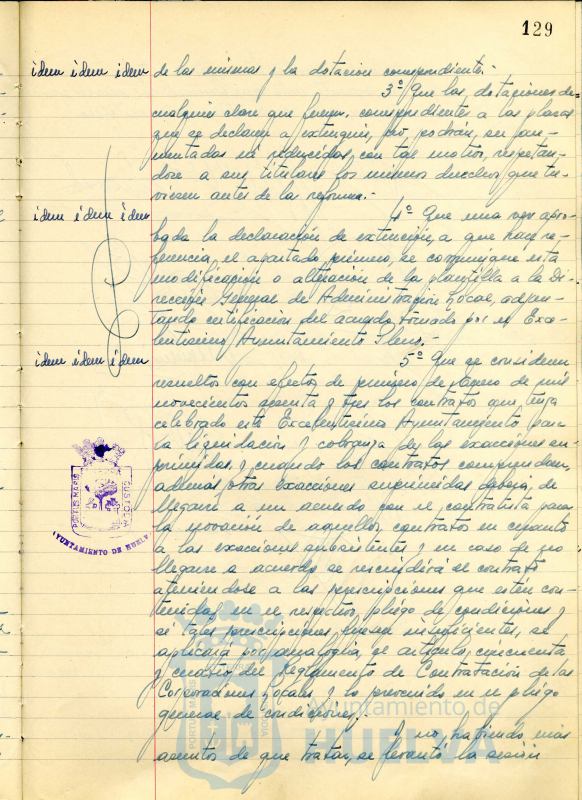 129
idem idem idem
de las mismas y la dotación correspondiente.-
3º Que las dotaciones de
cualquier clase que fueren, correspondientes a las plazas
que se declaren a extinguir, no podrán ser au-
mentadas ni reducidas con tal motivo, respetan-
dose a sus titulares los mismos derechos que tu-
viesen antes de la reforma.-
idem idem idem
4º Que una vez apro-
bada la declaración de extinción, a que hace re-
ferencia el apartado primero, se comunique esta
modificación o alteración de la plantilla a la Di-
rección General de Administración Local, adjun-
tando certificación del acuerdo tomado por el Exce-
lentísimo Ayuntamiento Pleno.-
idem idem idem
5º Que se consideren
resueltos con efectos de primero de Enero de mil
novecientos sesenta y tres los contratos que tenga
celebrado este Excelentísimo Ayuntamiento para
la liquidación y cobranza de las exacciones su-
primidas, y cuando los contratos comprendan,
además, otras exacciones suprimidas deberá de
llegarse a un acuerdo con el contratista para
la novación de aquellos contratos en cuanto
a las exacciones subsistentes y en caso de no
llegarse a acuerdo se rescindirá el contrato
ateniendose a las prescripciones que estén con-
tenidas en el respectivo pliego de condiciones y
si tales prescripciones fuesen insuficientes, se
aplicará por analogía, el artículo cincuenta
y cuatro del Reglamento de Contratación de las
Corporaciones Locales y lo prevenido en el pliego
general de condiciones.-
Y no habiendo más
asuntos de que tratar, se levantó la sesión
PORTUS MARIS CUSTODIA
AYUNTAMIENTO DE HUELVA
Ayuntamiento de
HUELVA